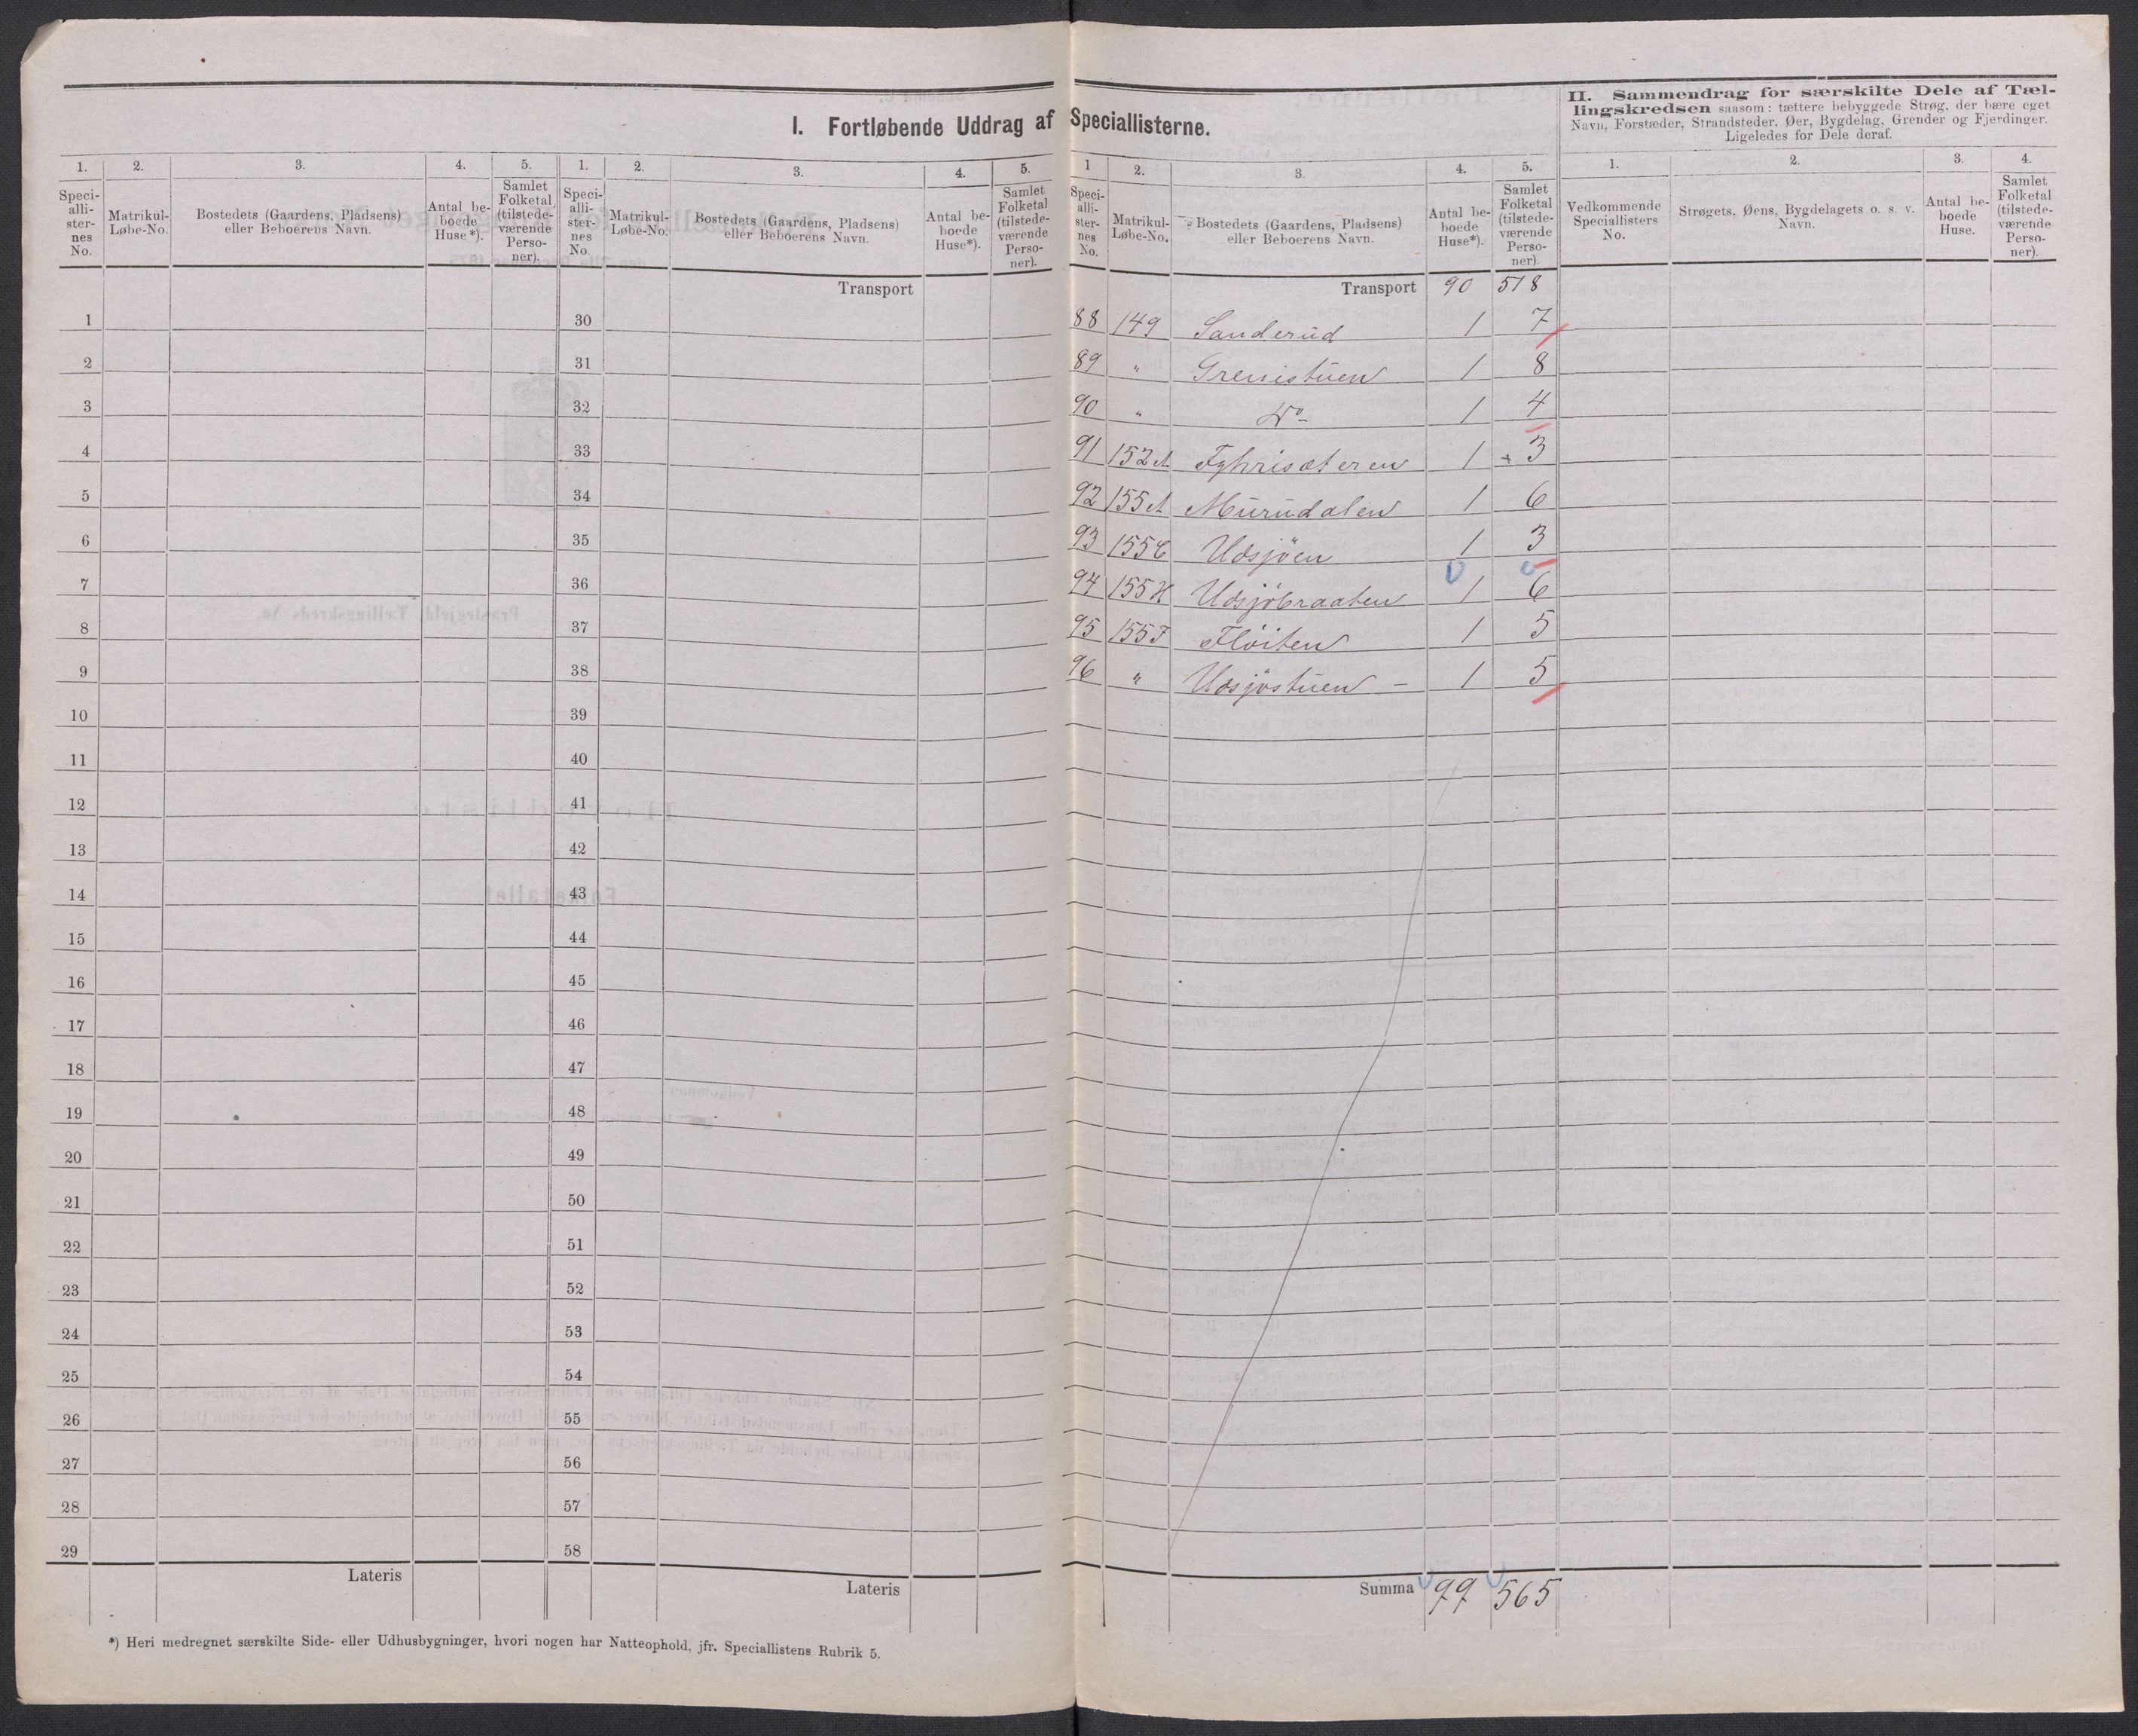 I. Fortløbende Uddrag af Speciallisterne.
II. Sammendrag for særskilte Dele af Tæl-
lingskredsen saasom: tættere bebyggede Strøg, der bære eget
Navn, Forstæder, Strandsteder, Øer, Bygdelag, Grender og Fjerdinger.
Ligeledes for Dele deraf.
1. 2. 3. 4. 5. 1. 2. 3. 4. 5.
Speci-alli-ster-nes No. Matrikul-Løbe-No. Bostedets (Gaardens, Pladsens) eller Beboerens Navn. Antal be-boede Huse*). Samlet Folketal (tilstede-værende Perso-ner).
Speci-alli-ster-nes No. Matrikul-Løbe-No. Bostedets (Gaardens, Pladsens) eller Beboerens Navn. Antal be-boede Huse*). Samlet Folketal (tilstede-værende Perso-ner).
Transport
1 30
2 31
3 32
4 33
5 34
6 35
7 36
8 37
9 38
10 39
11 40
12 41
13 42
14 43
15 44
16 45
17 46
18 47
19 48
20 49
21 50
22 51
23 52
24 53
25 54
26 55
27 56
28 57
29 58
Lateris Lateris
*) Heri medregnet særskilte Side- eller Udhusbygninger, hvori nogen har Natteophold, jfr. Speciallistens Rubrik 5.
1 2. 3. 4. 5.
Speci-alli-ster-nes No. Matrikul-Løbe-No. Bostedets (Gaardens, Pladsens) eller Beboerens Navn. Antal be-boede Huse*). Samlet Folketal (tilstede-værende Perso-ner).
Transport 90 518
88 149 Sanderud 1 7
89 " Grenistuen 1 8
90 " Do 1 4
91 152A Fyhrisæteren 1 + 3
92 155A Murudalen 1 6
93 155C Udsjöen 1 3
94 155H Udsjöbraaten 1 6
95 155F Flöiten 1 5
96 " Udsjöstuen – 1 5
Summa 99 565
1. 2. 3. 4.
Vedkommende Speciallisters No. Strøgets, Øens, Bygdelagets o. s. v. Navn. Antal be-boede Huse. Samlet Folketal (tilstede-værende Perso-ner).